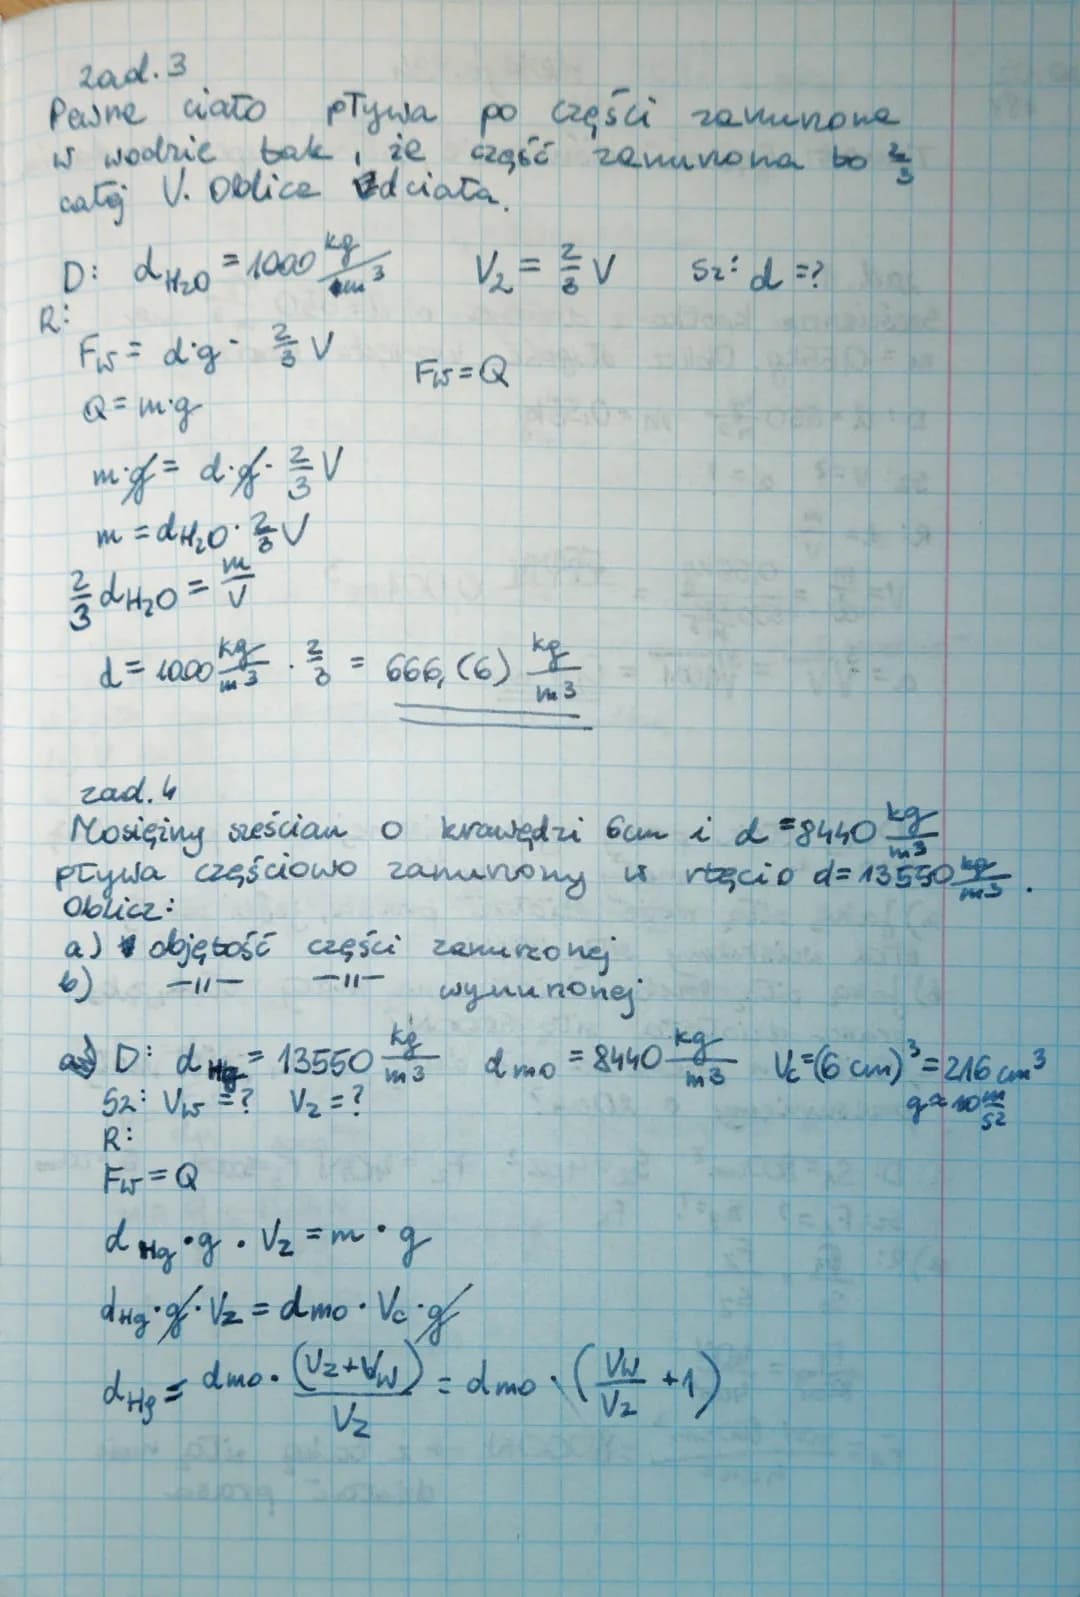 zad. 3
Pewne ciało pływa po części zanurzone
w wodzie tak, że część zanurzona to 2/3
całej V. Oblicz d ciała.
D: d H₂O = 1000 kg/m³ V₂ = 2/3 V Sz: d = ?
R:
Fw = d·g · 2/3 V
Fw = Q
Q = m·g
m·g = d·g · 2/3 V
m = d H₂O · 2/3 V
2/3 d H₂O = m/V
d = 1000 kg/m³ · 2/3 = 666,(6) kg/m³
zad. 4
Mosiężny sześcian o krawędzi 6cm i d = 8440 kg/m³
pływa częściowo zanurzony w rtęci o d = 13550 kg/m³.
Oblicz:
a) objętość części zanurzonej
b) —ıı— —ıı— wynurzonej
D: d Hg = 13550 kg/m³ d mo = 8440 kg/m³ Vc = (6 cm)³ = 216 cm³
g ≈ 10 m/s²
Sz: Vw = ? Vz = ?
R:
Fw = Q
d Hg · g · Vz = m · g
d Hg · g · Vz = d mo · Vc · g
d Hg = d mo · (Vz + Vw)/Vz = d mo · (Vw/Vz + 1)